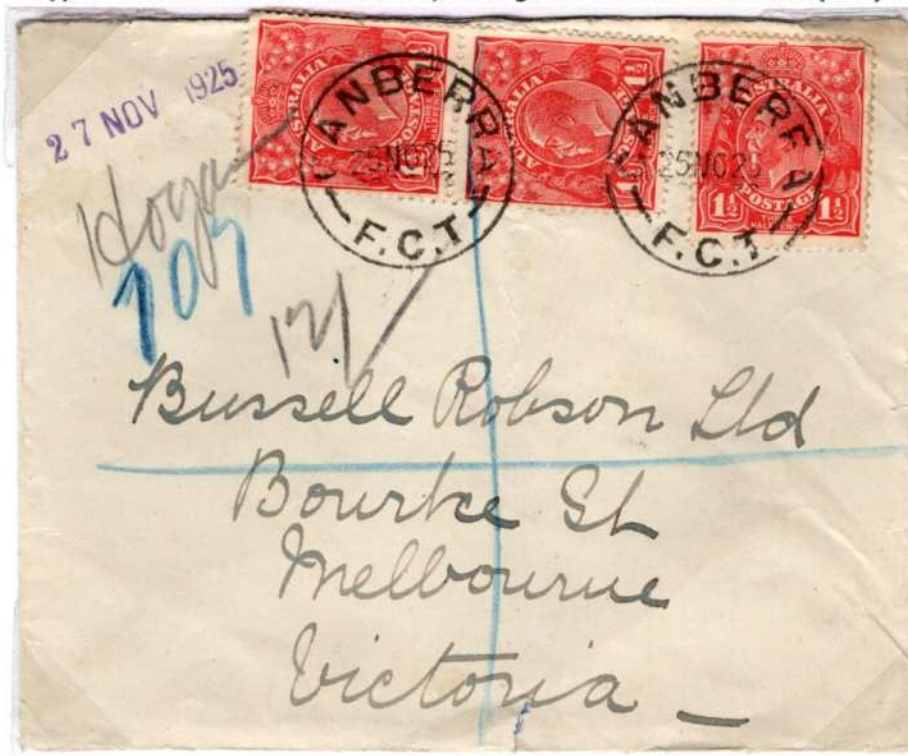 27 NOV 1925
CANBERRA
25 NO 25
F.C.T
CANBERRA
25 NO 25
F.C.T
AUSTRALIA
POSTAGE
1½ 1½
HALFPENCE
Hogan
109
121
Bussell Robson Ltd
Bourke St
Melbourne
Victoria